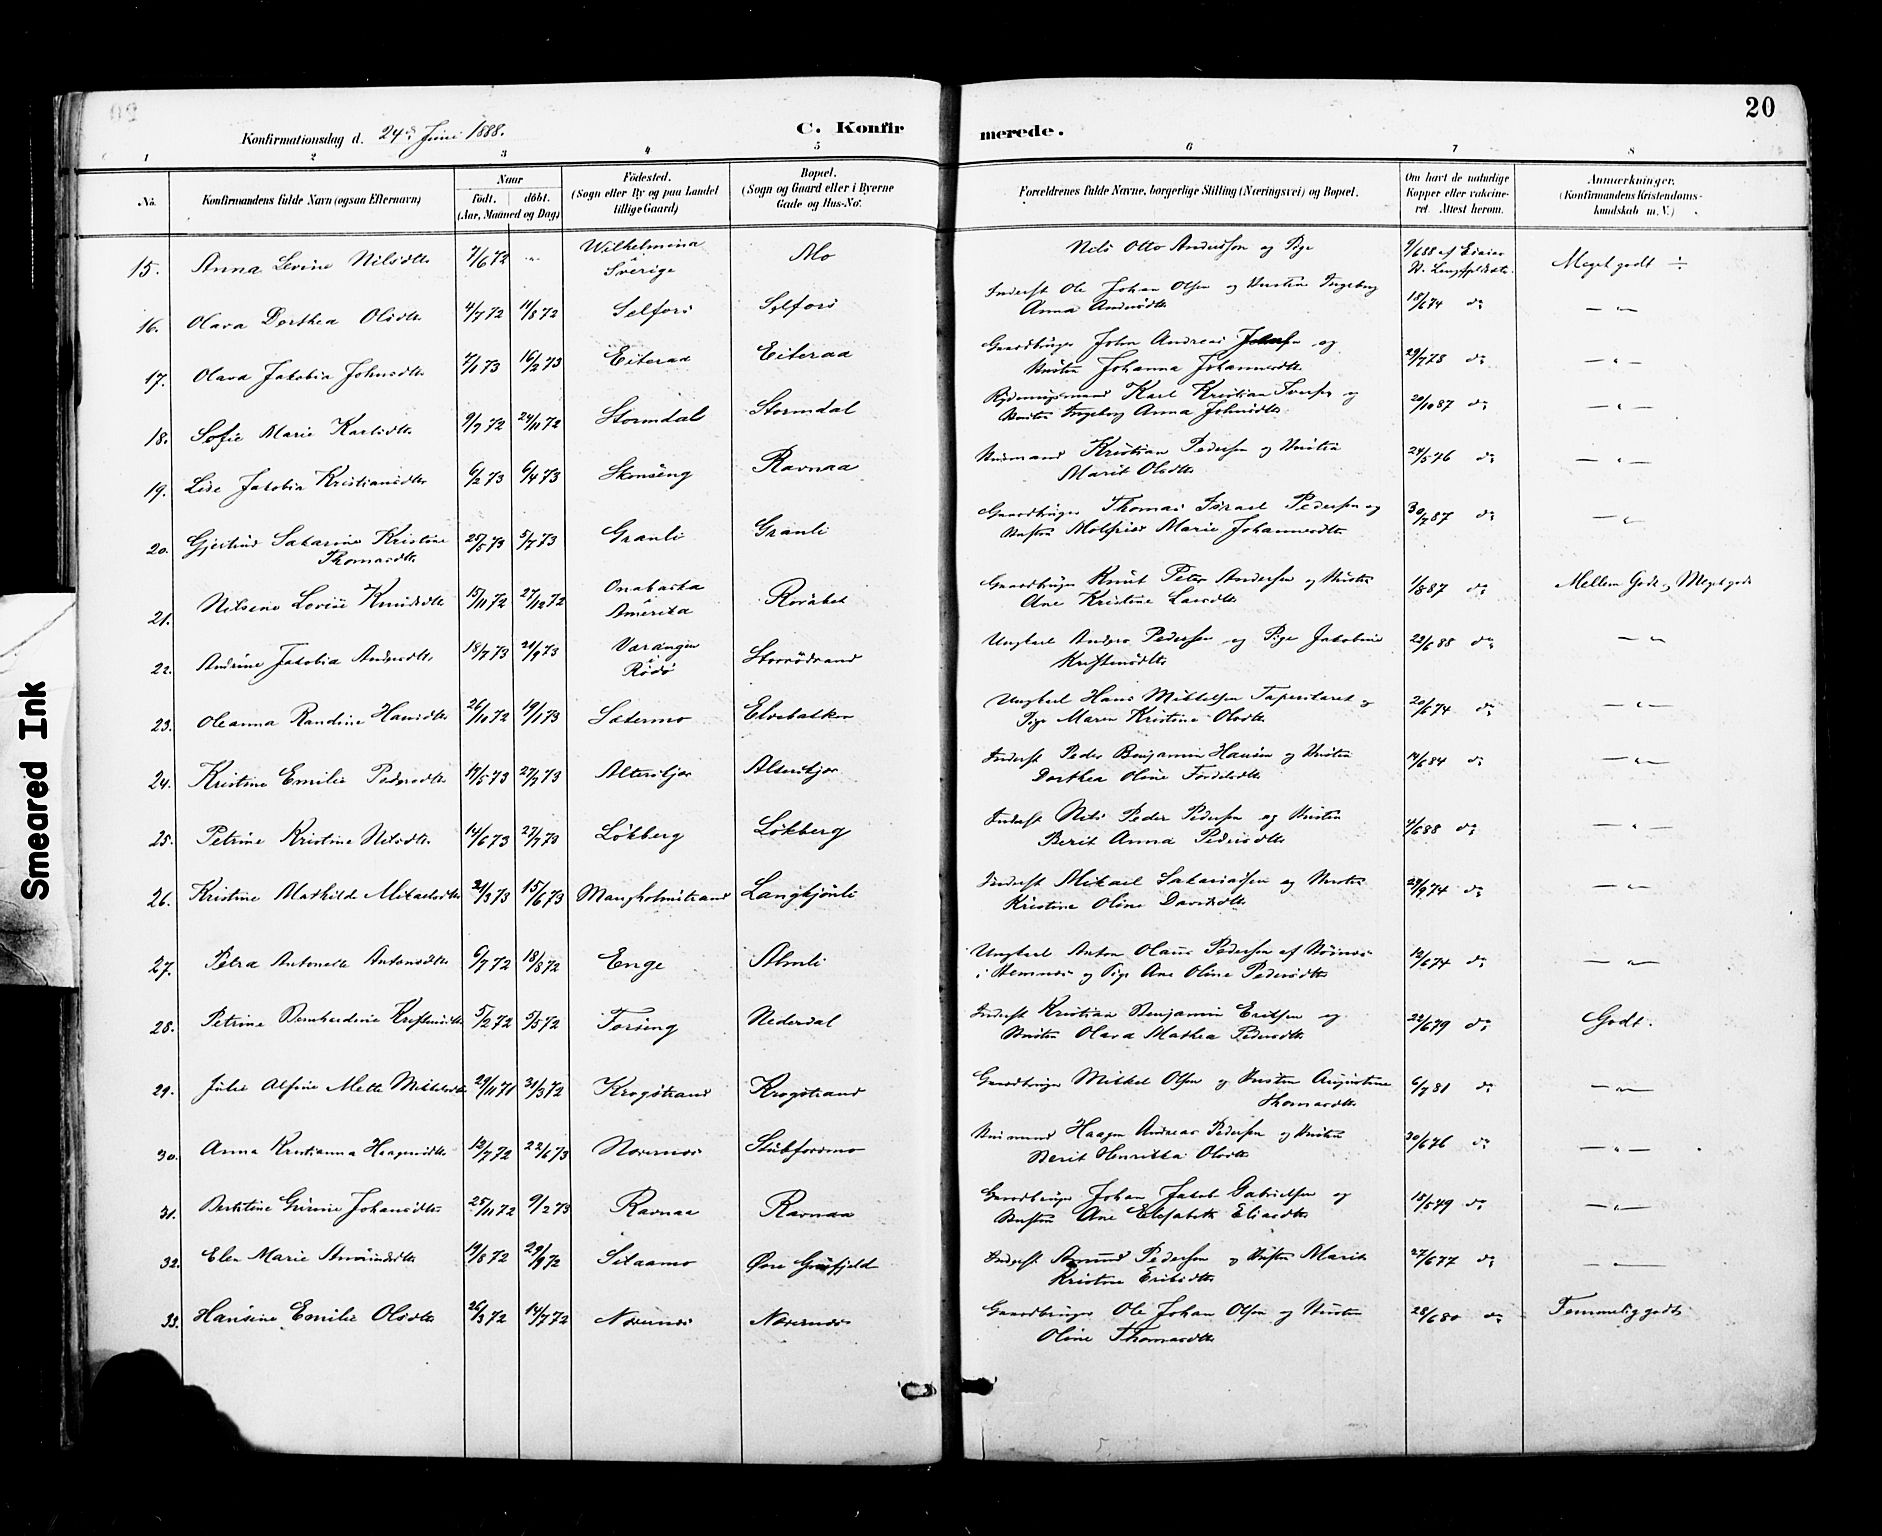 20
Konfirmationsdag d. 24de Juni 1888.
C. Konfirmerede.
1 2 3 4 5 6 7 8
No.
Konfirmandens fulde Navn (ogsaa Efternavn)
Naar
født. døbt.
(Aar, Maaned og Dag)
Fødested.
(Sogn eller By og paa Landet
tillige Gaard)
Bopæl.
(Sogn og Gaard eller i Byerne
Gade og Hus-No.
Forældrenes fulde Navne, borgerlige Stilling (Næringsvei) og Bopæl.
Om havt de naturlige
Kopper eller vaccineret. Attest herom.
Anmærkninger.
(Konfirmandens Kristendomskundskab m. V.)
15. Anna Levine Nilsdtr 7/6 72 -"- Wilhelmina i Sverige Mo Nils Otto Andersson og Pige 9/6 88 af Meget godt ÷
16. Olava Dorthea Olsdtr 4/7 72 11/8 72 Selfors Selfors Inderst Ole Johan Olsen og Hustru Ingeborg
Anna Andersdtr 18/6 74 do — " —
17. Olava Jakobia Johnsdtr 7/1 73 16/2 73 Eiteraa Eiteraa Gaardbruger John Andreas og
Hustru Johanna Johannesdtr 29/7 78 do — " —
18. Sofie Marie Karlsdtr 9/7 72 24/11 72 Stormdal Stormdal Rydningsmand Karl Kristian Iversen og
Hustru Ingeborg Anna Johnsdtr 20/10 87 do — " —
19. Lise Jakobia Kristiansdtr 6/2 73 6/4 73 Skonseng Ravnaa Husmand Kristian Pedersen og Hustru
Marit Olsdtr 24/5 76 do — " —
20. Gjertrud Sakarine Kristine
Thomasdtr 25/5 73 5/7 73 Granli Granli Gaardbruger Thomas Israel Pedersen og
Hustru Marie Johannesdtr 30/7 87 do — " —
21. Nilsine Lovise Knudsdtr 15/11 72 27/12 72 Onabaska i Amerika Gaardbruger Knut Peter Andersen og Hustru
Ane Kristine Larsdtr 1/8 87 do Mellem Godt og Meget godt
22. Andrine Jakobia Andersdtr 18/7 73 21/9 73 Værangen i Rødø Gaardbruger Ungkarl Anders Pedersen og Pige Jakobine
Kristensdtr 22/6 88 do — " —
23. Oleanna Randine Hansdtr 26/10 72 19/1 73 Sætermo Elvebakken Ungkarl Hans Mikkelsen og
Pige Maren Kristine Olsdtr 20/6 74 do — " —
24. Kristine Emilie Pedersdtr 19/5 73 27/7 73 Alterskjær Alterskjær Inderst Peder Benjamin Hansen og Hustru
Dorthea Oline 14/6 84 do — " —
25. Petrine Kristine Nilsdtr 14/6 73 27/7 73 Løkberg Løkberg Inderst Nils Peder Pedersen og Hustru
Berit Anna Pedersdtr 4/6 88 do — " —
26. Kristine Mathilde Mikaelsdtr 21/3 73 15/6 73 Mangholmstrand Inderst Mikael Sakariassen og Hustru
Kristine Oline Davidsdtr 29/9 74 do — " —
27. Petra Antonette Antonsdtr 6/7 72 18/8 72 Enge Almli Ungkarl Anton Olaus Pedersen af
i Hemnes og Pige Ane Oline Pedersdtr 12/6 74 do — " —
28. Petrine Bernhardine Kristensdtr 5/2 72 5/5 72 Nederdal Inderst Kristian Benjamin Eriksen og
Hustru Olava Mathea Pedersdtr 22/6 79 do Godt.
29. Julie Alfine Mette Mikkelsdtr 29/11 71 31/3 72 Krogstrand Krogstrand Gaardbruger Mikkel Olsen og Hustru Augustine
Thomasdtr 6/7 81 do — " —
30. Anna Kristianna Haagensdtr 12/7 72 22/6 73 Nævernes Stubforsmo Husmand Haagen Andreas Pedersen og Hustru
Berit Henrikka Olsdtr 30/6 76 do — " —
31. Johansdtr 25/11 72 9/2 73 Ravnaa Ravnaa Gaardbruger Johan Jakob Gabrielsen og
Hustru Ane Elisabeth Eliasdtr 18/5 79 do — " —
32. Elen Marie Amundsdtr 19/8 72 29/9 72 Øvre Inderst Amund Pedersen og Hustru Marit
Kristine Eriksdtr 27/6 77 do — " —
33. Hansine Emilie Olsdtr 26/3 72 14/7 72 Nævernes Nævernes Gaardbruger Ole Johan Olsen og Hustru
Oline Thomasdtr 28/6 80 do Temmelig godt
Smeared Ink